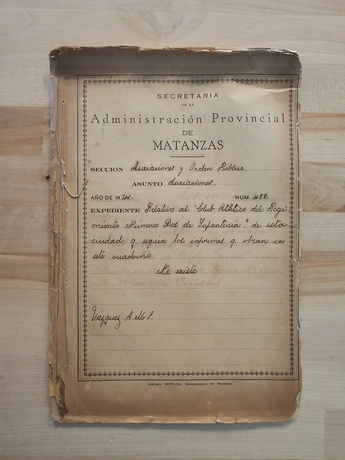 SECRETARIA
DE LA
Administración Provincial
DE
MATANZAS
SECCION Asociaciones y Orden Público
ASUNTO Asociaciones.
AÑO DE 19 NUM. 488.
EXPEDIENTE Relativo al Club Atlético del Regi
miento Número Dos de Infantería", de esta
ciudad, y los informes q. obran en
este cuaderno.
No existe
Vazquez